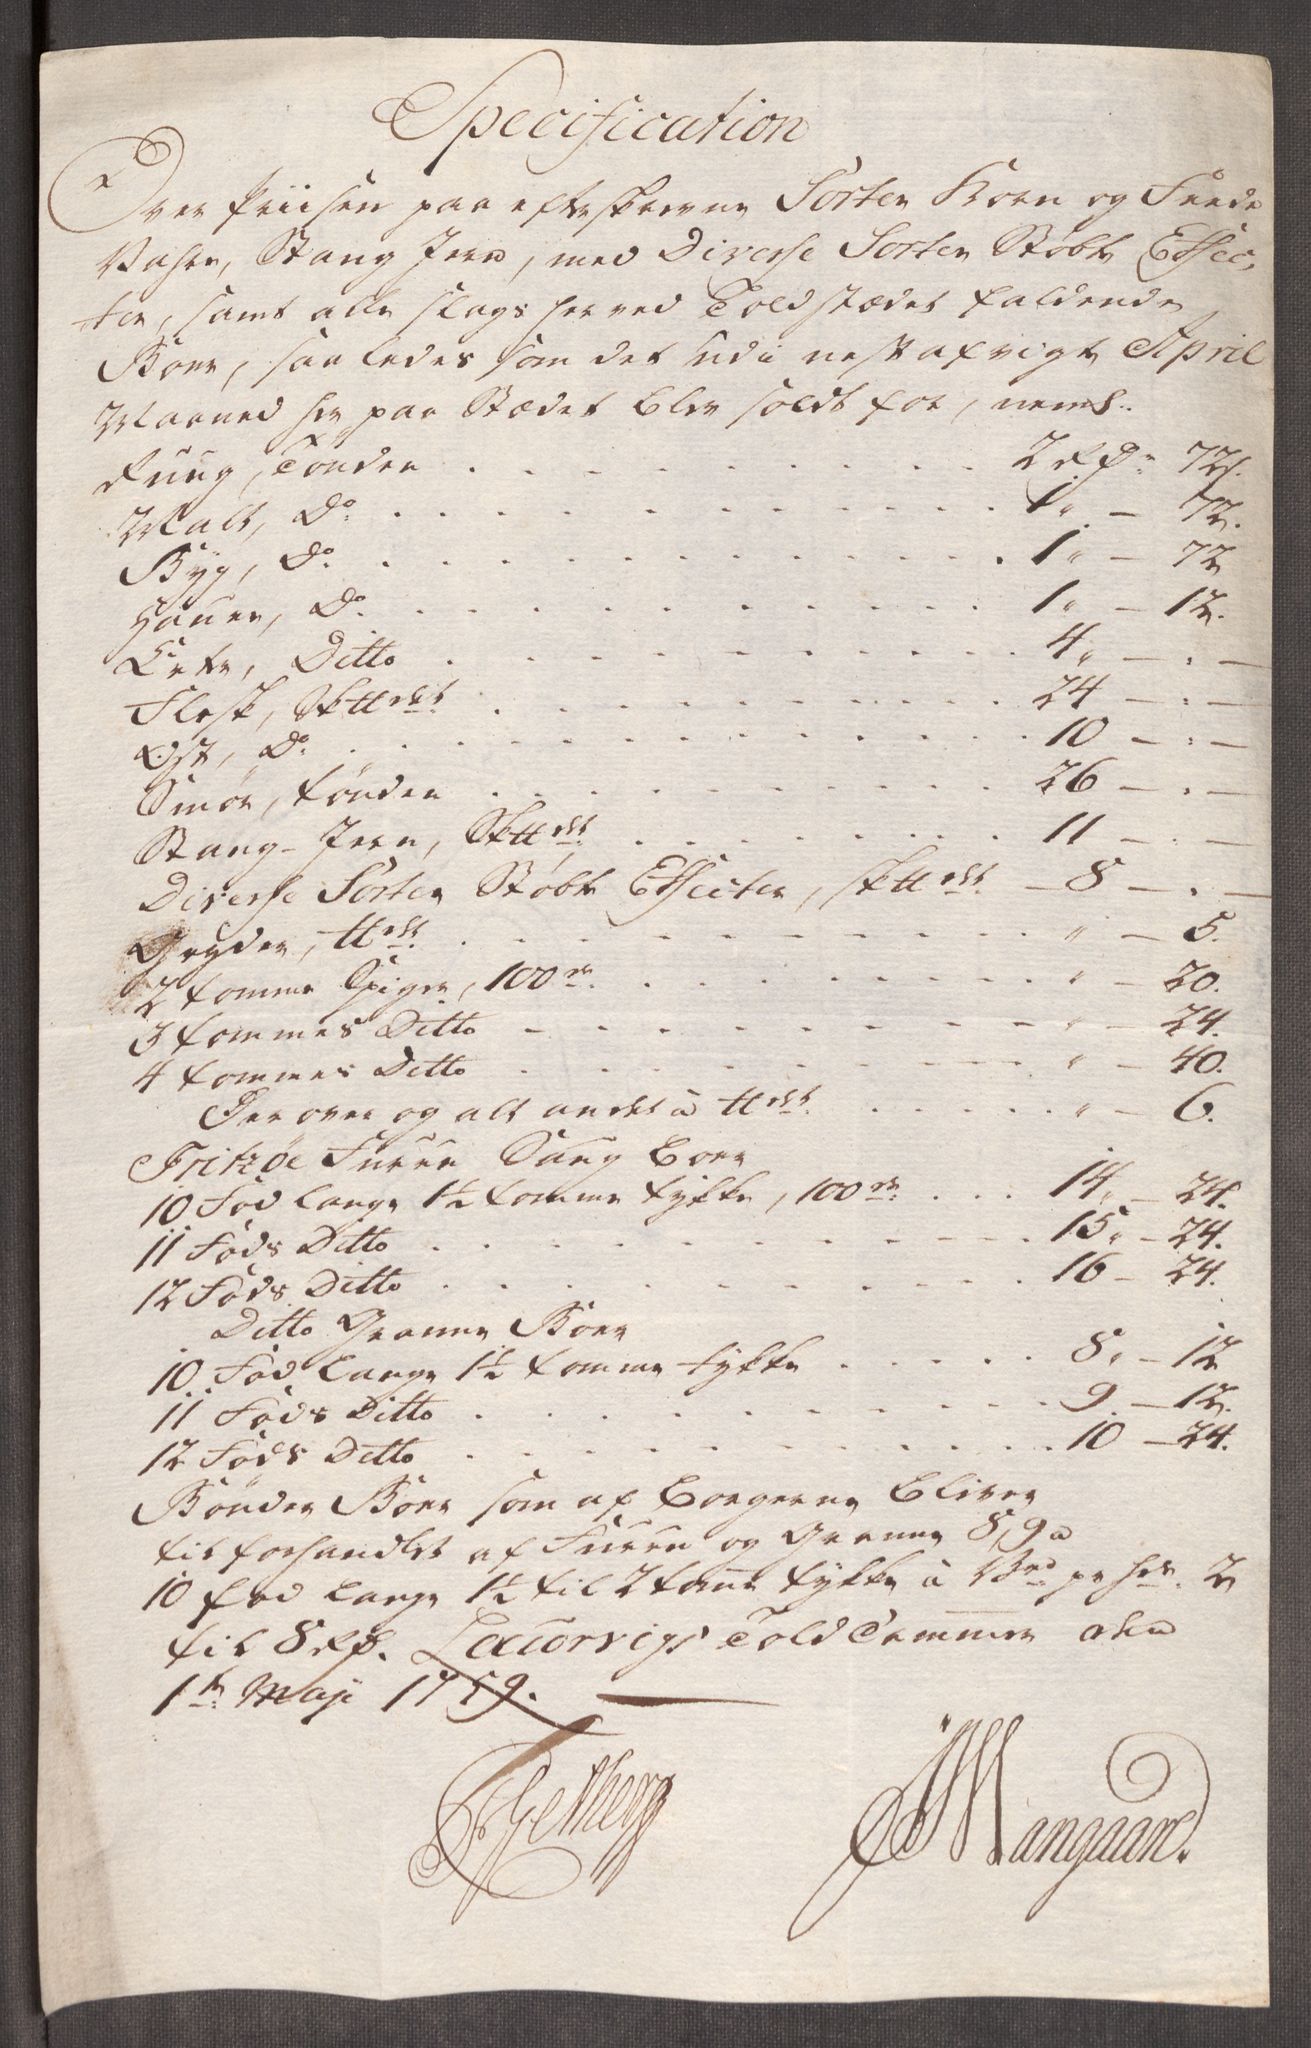 Specification
Over Priisen paa efterskrevne Sorter Korn og Feede
Vahre, Stang Jern, med Diverse Sorter Støbte Effec-
ter, samt alle slags her ved Toldstædet faldende
Bord, saaledes som det udi nest afvigte April
Maaned her paa Stædet blev soldt for, neml:
Rug, Tønden . . . . 2 rd - 72 s.
Malt, Do. . . . . 1 " - 72.
Byg, Do. . . . . 1 " - 72
Hauer, Do. . . . . 1 " - 12.
Erter, Ditto . . . . 4 " - : -
Flesk, Sk℔det . . . . 24 - : -
Ost, Do. . . . . 10 - : -
Smør, tønden . . . . 26 - . -
Stang-Jern, Sk℔det . . . . 11 - . -
Diverse Sorter Støbte Effecter, sk℔det - 8 - . -
Gryder, ℔det . . . . " - 5.
2 tomme Spiger, 100de . . . . " - 20.
3 tommes Ditto - - - - " - 24.
4 tommes Ditto . . . . " - 40.
Der over og alt andet a ℔det . . . . " - 6.
Fritzøe Furru Saug Bord
10 Fod lange 1½ tomme tykke, 100de . . . 14 " - 24.
11 Fods Ditto . . . . 15 " - 24.
12 Fods Ditto . . . . 16 - 24.
Ditto Granne Bord
10 Fod lange 1½ tomme tykke . . . . 8 " - 12
11 Fods Ditto . . . . 9. - 12.
12 Fods Ditto . . . . 10 - 24.
Bønder Bord som af Borgerne bliver
tilforhandlet af Furru og Granne 8, 9 a
10 fod lange 1½ til 2 tomme tykke á 13 pr hde. 2
til 8 rd. Laurvigs Told Cammer den
1te Maji 1759.
Mangaard.